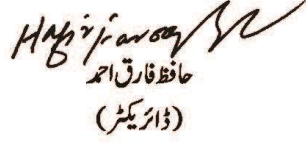 حافظ فارق احمد
(ڈائریکٹر)